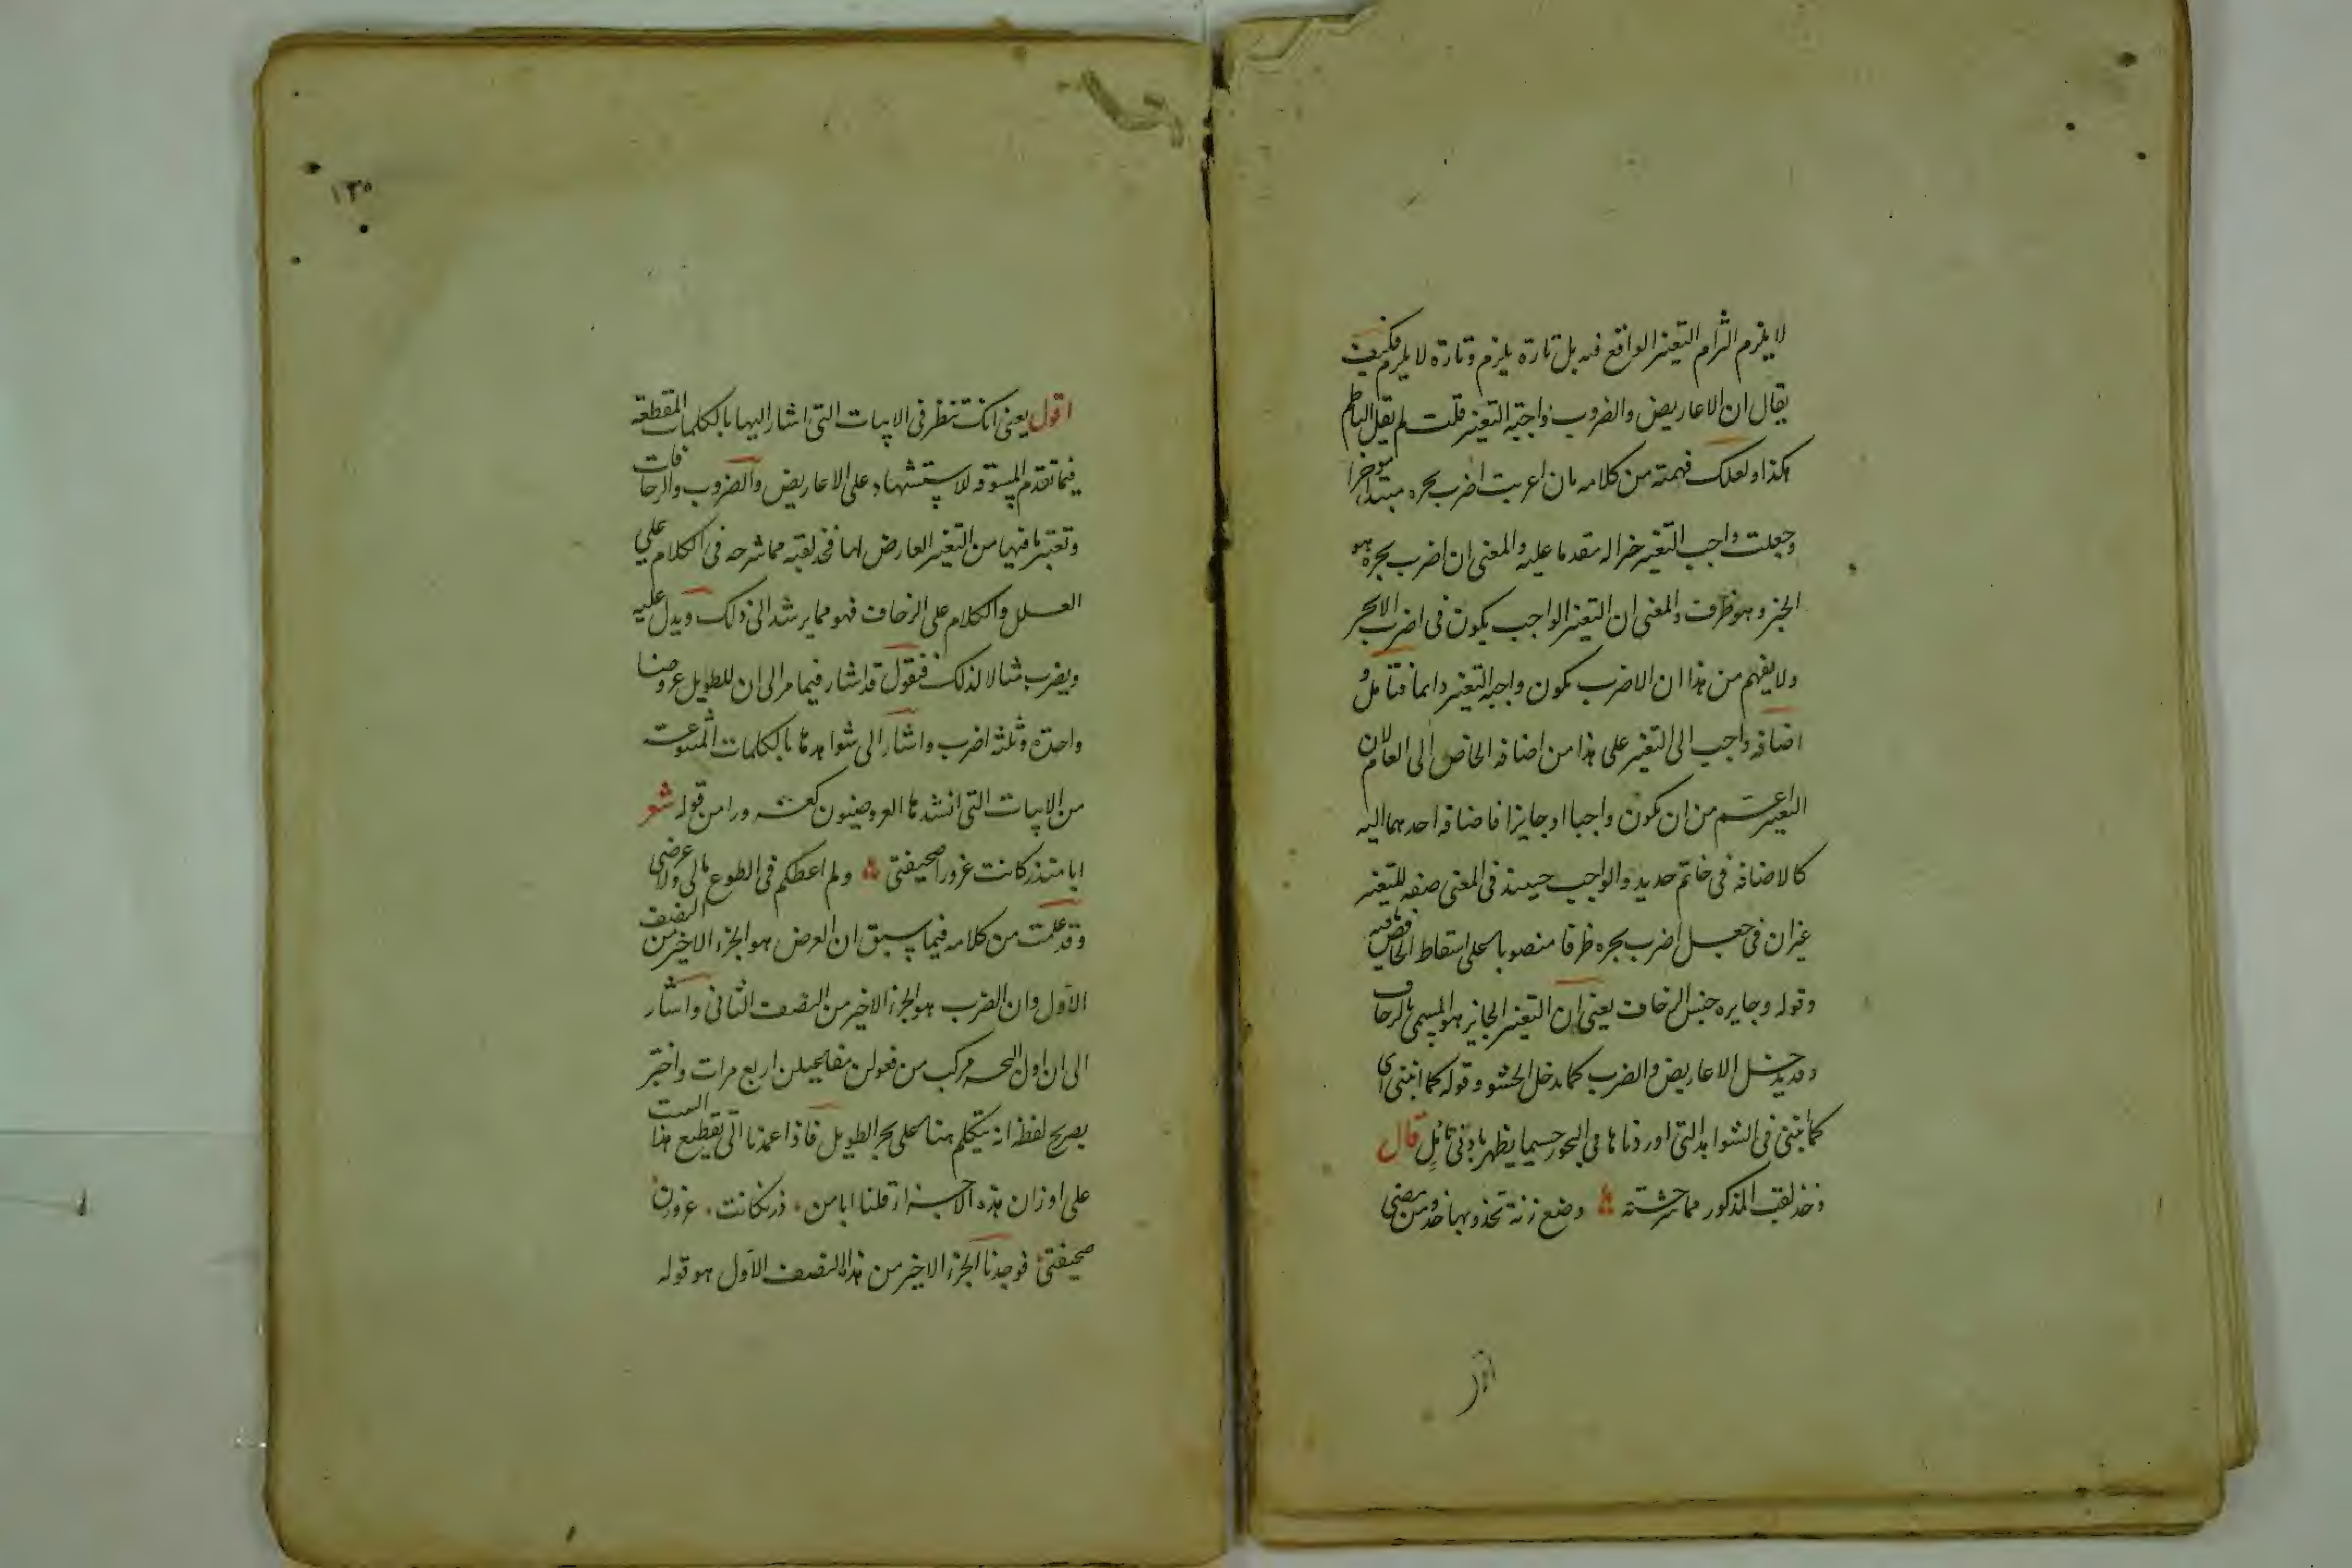 لا يلزم التزام التغيير الواقع فيه بل تارة يلزم وتارة لا يلزم فكيف
يقال ان الاعاريض والضروب واجبة التغيير قلت لم يقل الناظم
هكذا ولعلك فهمته من كلامه بان اعربت اضرب بحره مبتدا موخرا
وجعلت واجب التغيير خبرا له مقدما عليه والمعنى ان اضرب بحره هو
الجزو هو ظرف والمعنى ان التغيير الواجب يكون في اضرب الابحر
ولا يفهم من هذا ان الاضرب تكون واجبة التغيير دايما فتامل و
اضافة واجب الى التغيير على هذا من اضافة الخاص الى العام لان
التغيير اعم من ان يكون واجبا او جايزا فاضافة احدهما اليه
كالاضافة في خاتم حديد والواجب حينئذ في المعنى صفة للتغيير
غير ان في جعل اضرب بحره ظرفا منصوبا على اسقاط الخافض ما فيه
وقوله وجايزه جنس الزحاف يعنى ان التغيير الجايز هو المسمى بالزحاف
وقد يدخل الاعاريض والضرب كما يدخل الحشو وقوله كما انبنى اى
كما انبنى في الشواهد التى اوردناها في البحور حسبما يظهر بادنى تامل قال
وخذ لقب المذكور مما شرحته وضع زنة تحذو بها حذو من مضى
اقول
١٣٥
اقول يعنى انك تنظر في الابيات التى اشار اليها بالكلمات المقطعة
فيما تقدم المسوقة للاستشهاد على الاعاريض والضروب والزحافات
وتعتبر ما فيها من التغيير العارض لها فخذ لقبه مما شرحه في الكلام على
العلل والكلام على الزحاف فهو مما يرشد الى ذلك ويدل عليه
ويضرب مثالا لذلك فنقول قد اشار فيما مر الى ان للطويل عروضا
واحدة وثلثة اضرب واشار الى شواهدها بالكلمات
من الابيات التى انشدها العروضيون ورا من قوله شعر
ابا منذر كانت غرورا صحيفتى ولم اعطكم في الطوع مالى ولا عرضى
وقد علمت من كلامه فيما سبق ان العرض هو الجزء الاخير من النصف
الاول وان الضرب هو الجزء الاخير من النصف الثانى واشار
الى ان اول البحر مركب من فعولن مفاعيلن اربع مرات واخبر
بصريح لفظه انه يتكلم هنا على بحر الطويل فاذا عمدنا الى تقطيع هذا البيت
على اوزان هذه الاجزاء قلنا ابا من ذرنكانت غرورن
صحيفتى فوجدنا الجزء الاخير من هذا النصف الاول هو قوله